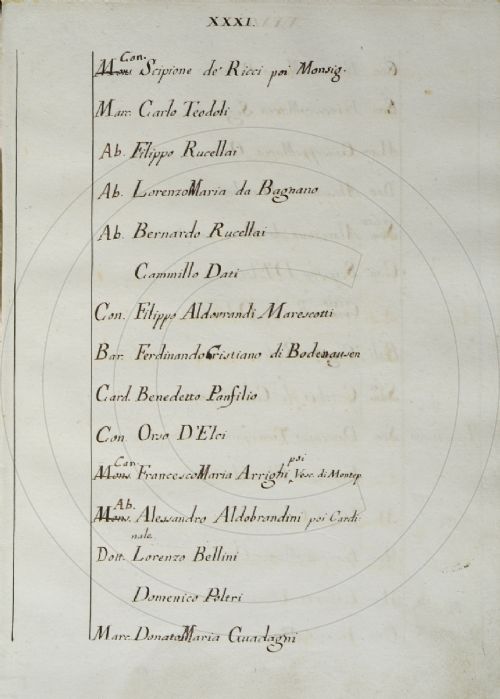 XXXI.
Con.
Mons Scipione de' Ricci poi Monsig.
Marc. Carlo Teodoli
Ab. Filippo Rucellai
Ab. Lorenzo Maria da Bagnano
Ab. Bernardo Rucellai
Cammillo Dati
Con. Filippo Aldovrandi Marescotti
Bar. Ferdinando Cristiano di Bodenausen
Card. Benedetto Panfilio
Con. Orso D'Elci
Can. poi
Mons. Francesco Maria Arrighi Vesc. di Montep
Ab.
Mons. Alessandro Aldobrandini poi Cardi-
nale
Dott. Lorenzo Bellini
Domenico Poltri
Marc. Donato Maria Guadagni